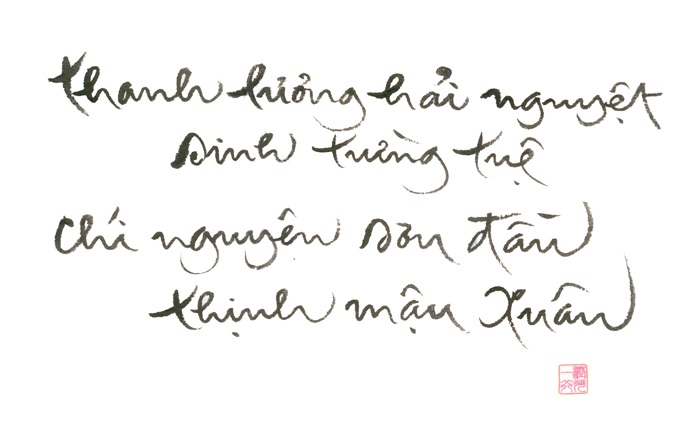 thanh lưởng hải nguyệt
sinh tường tuệ
Chí nguyện sơn đầu
thịnh mậu Xuân